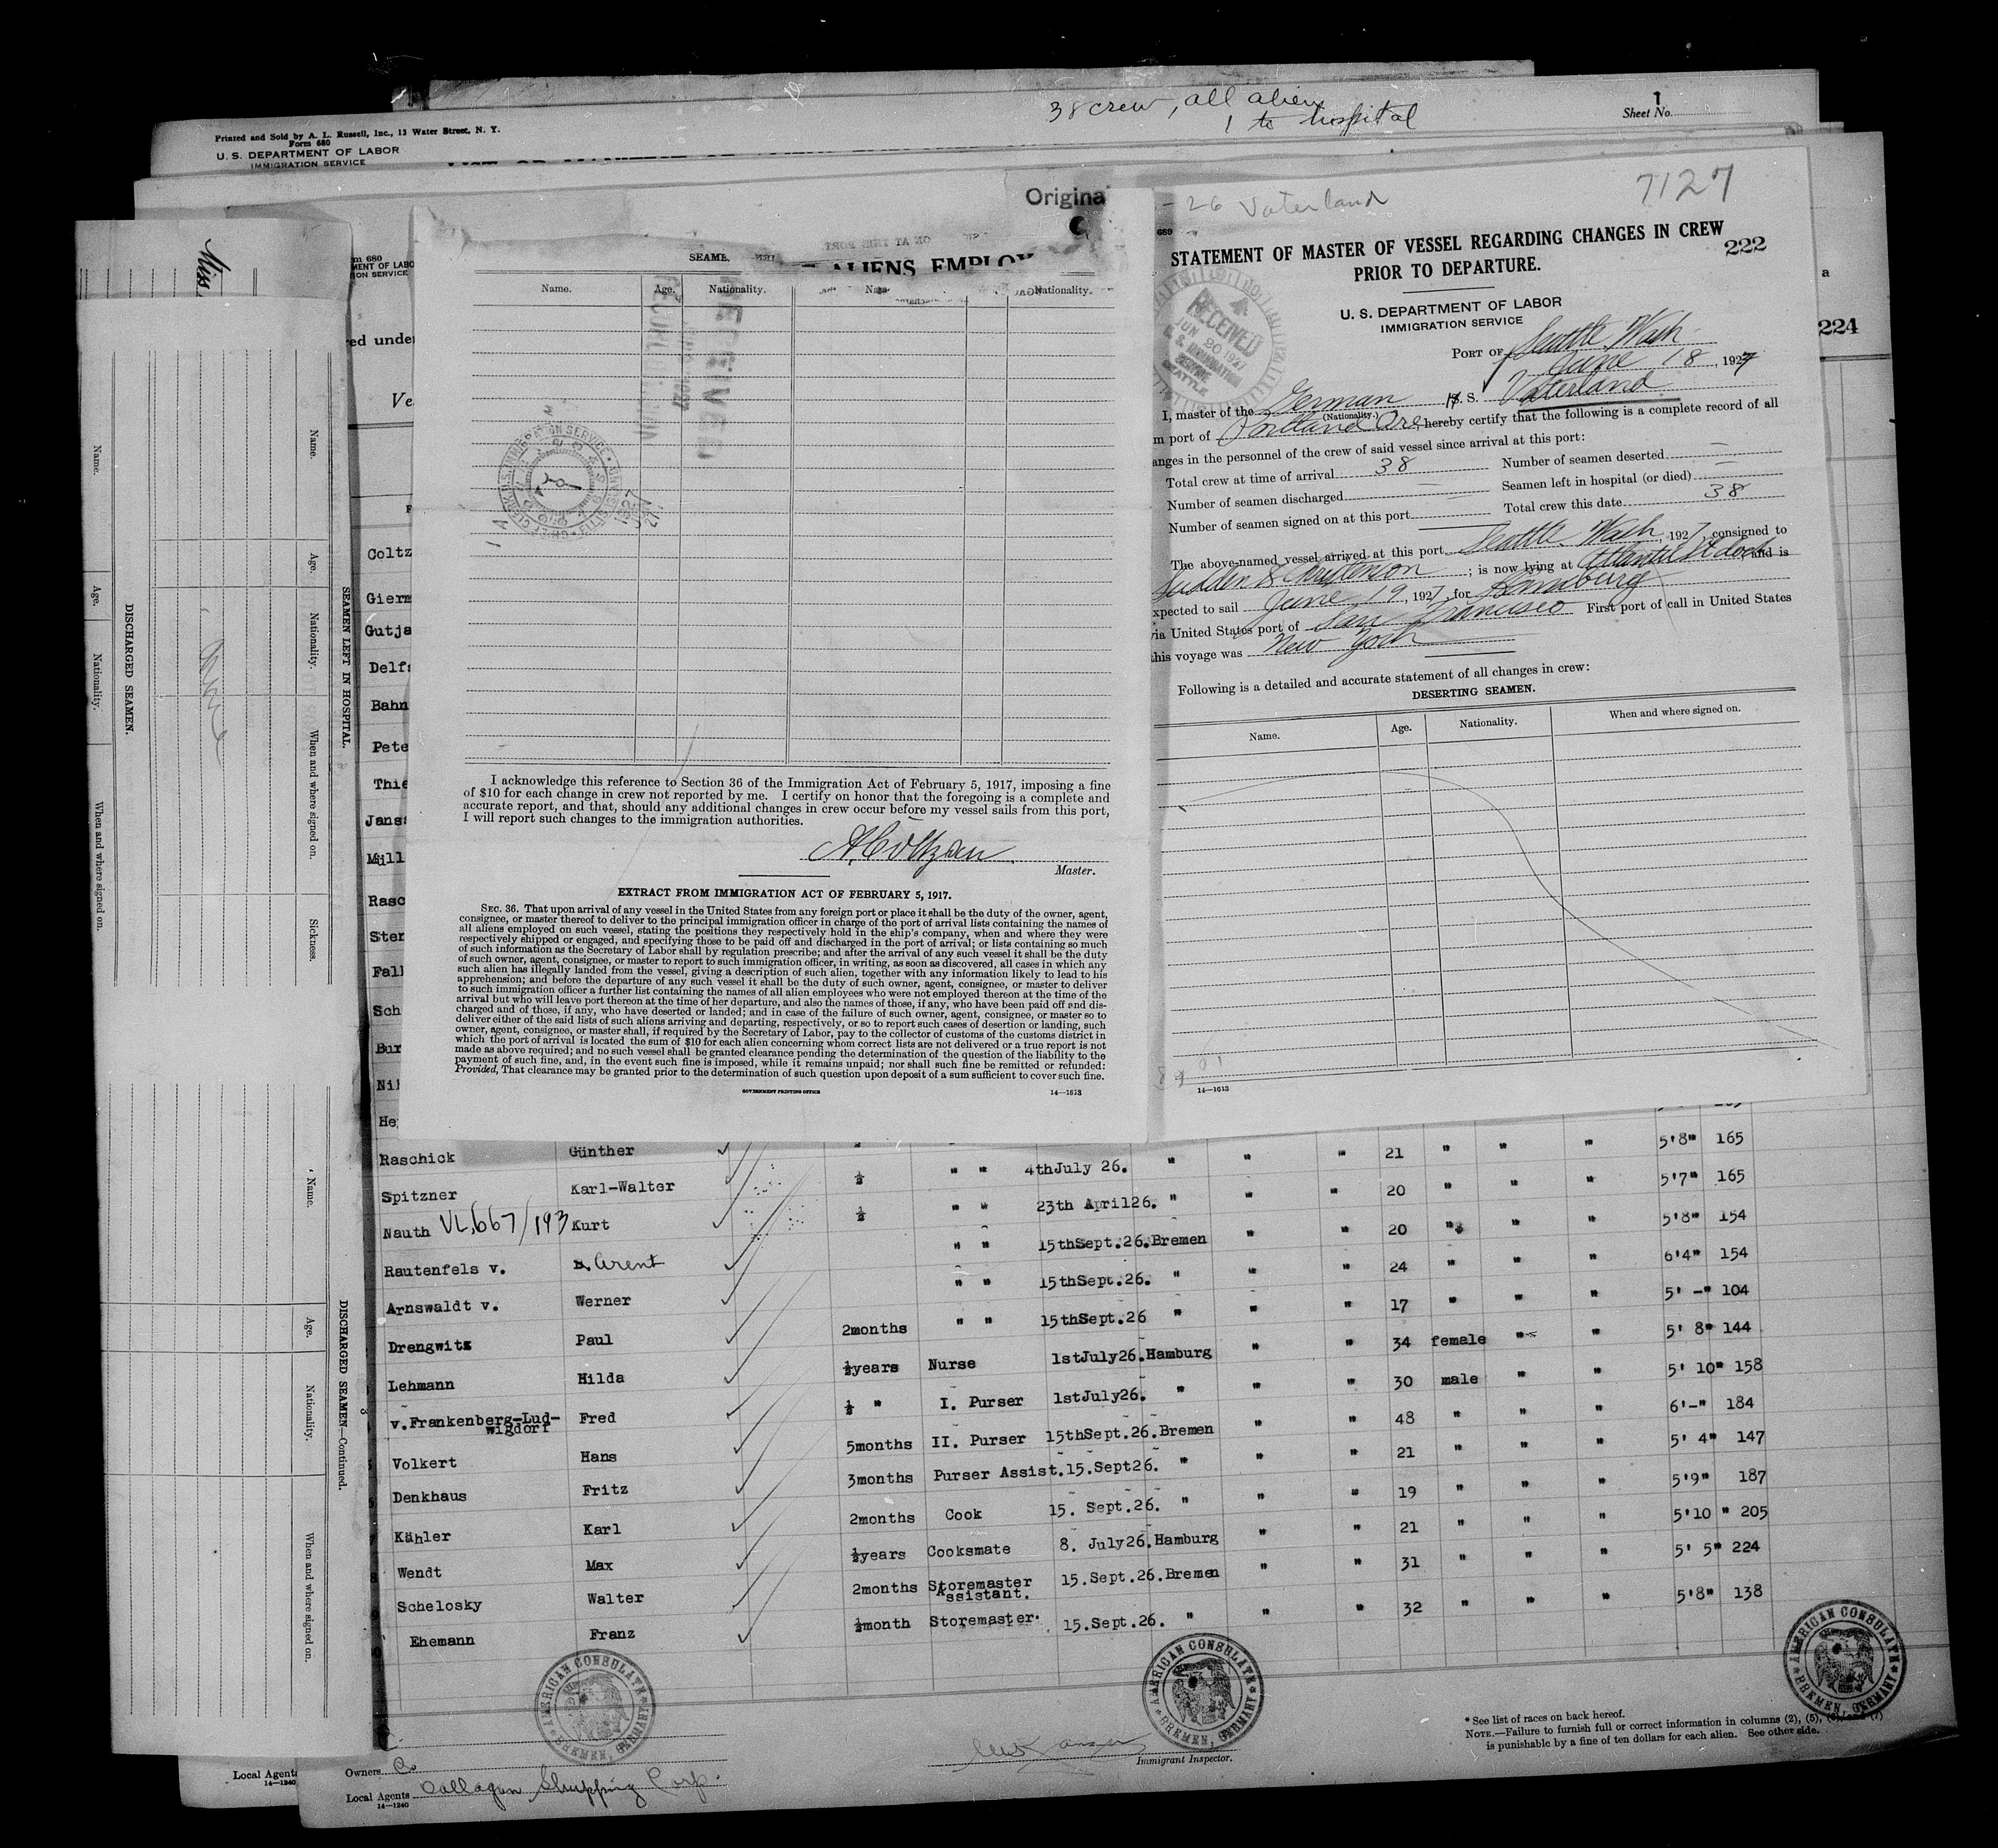 38 crew, all alien
1 to hospital
1
Sheet No.
Printed and Sold by A. L. Russell, Inc., 13 Water Street, N. Y.
Form 680
U. S. DEPARTMENT OF LABOR
IMMIGRATION SERVICE
Origina
26 Vaterland
7127
STATEMENT OF MASTER OF VESSEL REGARDING CHANGES IN CREW
222
PRIOR TO DEPARTURE.
U. S. DEPARTMENT OF LABOR
IMMIGRATION SERVICE
224
RECEIVED
JUN 20 1927
SEATTLE
PORT OF Seattle Wash
June 18, 1927
I, master of the German S. S. Vaterland
(Nationality.)
m port of Portland Ore, hereby certify that the following is a complete record of all
anges in the personnel of the crew of said vessel since arrival at this port:
Total crew at time of arrival 38 Number of seamen deserted —
Number of seamen discharged — Seamen left in hospital (or died) —
Number of seamen signed on at this port — Total crew this date 38
The above-named vessel arrived at this port Seattle Wash, 1927, consigned to
Sudden & Christenson; is now lying at Atlantic St dock and is
xpected to sail June 19, 1927, for Hamburg
via United States port of San Francisco First port of call in United States
this voyage was New York
Following is a detailed and accurate statement of all changes in crew:
DESERTING SEAMEN.
Name. Age. Nationality. When and where signed on.
14—1613
ALIENS EMPLOY
SEAME
Name. Age. Nationality. Nationality.
I acknowledge this reference to Section 36 of the Immigration Act of February 5, 1917, imposing a fine
of $10 for each change in crew not reported by me. I certify on honor that the foregoing is a complete and
accurate report, and that, should any additional changes in crew occur before my vessel sails from this port,
I will report such changes to the immigration authorities.
A. Coltzau
Master.
EXTRACT FROM IMMIGRATION ACT OF FEBRUARY 5, 1917.
SEC. 36. That upon arrival of any vessel in the United States from any foreign port or place it shall be the duty of the owner, agent,
consignee, or master thereof to deliver to the principal immigration officer in charge of the port of arrival lists containing the names of
all aliens employed on such vessel, stating the positions they respectively hold in the ship's company, when and where they were
respectively shipped or engaged, and specifying those to be paid off and discharged in the port of arrival; or lists containing so much
of such information as the Secretary of Labor shall by regulation prescribe; and after the arrival of any such vessel it shall be the duty
of such owner, agent, consignee, or master to report to such immigration officer, in writing, as soon as discovered, all cases in which any
such alien has illegally landed from the vessel, giving a description of such alien, together with any information likely to lead to his
apprehension; and before the departure of any such vessel it shall be the duty of such owner, agent, consignee, or master to deliver
to such immigration officer a further list containing the names of all alien employees who were not employed thereon at the time of the
arrival but who will leave port thereon at the time of her departure, and also the names of those, if any, who have been paid off and dis-
charged and of those, if any, who have deserted or landed; and in case of the failure of such owner, agent, consignee, or master so to
deliver either of the said lists of such aliens arriving and departing, respectively, or so to report such cases of desertion or landing, such
owner, agent, consignee, or master shall, if required by the Secretary of Labor, pay to the collector of customs of the customs district in
which the port of arrival is located the sum of $10 for each alien concerning whom correct lists are not delivered or a true report is not
made as above required; and no such vessel shall be granted clearance pending the determination of the question of the liability to the
payment of such fine, and, in the event such fine is imposed, while it remains unpaid; nor shall such fine be remitted or refunded:
Provided, That clearance may be granted prior to the determination of such question upon deposit of a sum sufficient to cover such fine.
GOVERNMENT PRINTING OFFICE
14—1613
m 680
MENT OF LABO
ION SERVICE
ed unde
Ve
Coltz
Gierm
Gutja
Delfs
Bahn
Pete
Thie
Jans
Mill
Rasc
Ster
Fall
Sch
Bur
Nil
He
Raschick Günther 21 " " " 5'8" 165
Spitzner Karl-Walter ½ " " 4thJuly 26. " " " 20 " " " 5'7" 165
Nauth VL.667/193 Kurt ½ " " 23th April26. " " " 20 " " " 5'8" 154
Rautenfels v. Arent " " 15thSept.26. Bremen " " 24 " " " 6'4" 154
Arnswaldt v. Werner " " 15thSept.26. " " " 17 " " " 5' -" 104
Drengwitz Paul 2months " " 15thSept.26 " " " 34 female " " 5' 8" 144
Lehmann Hilda ½years Nurse 1stJuly26. Hamburg " " 30 male " " 5' 10" 158
v.Frankenberg-Lud-
wigdorf Fred ½ " I. Purser 1stJuly26. " " " 48 " " " 6'-" 184
Volkert Hans 5months II. Purser 15thSept.26. Bremen " " 21 " " " 5' 4" 147
Denkhaus Fritz 3months Purser Assist. 15.Sept26. " " " 19 " " " 5'9" 187
Kähler Karl 2months Cook 15. Sept.26. " " " 21 " " " 5'10" 205
Wendt Max ½years Cooksmate 8. July26. Hamburg " " 31 " " " 5' 5" 224
Schelosky Walter 2months Storemaster
Assistant. 15.Sept.26. Bremen " " 32 " " " 5'8" 138
Ehemann Franz ½month Storemaster. 15.Sept.26. "
AMERICAN CONSULATE
BREMEN, GERMANY
AMERICAN CONSULATE
BREMEN, GERMANY
AMERICAN CONSULATE
BREMEN, GERMANY
* See list of races on back hereof.
NOTE.—Failure to furnish full or correct information in columns (2), (5), (6), and (7)
is punishable by a fine of ten dollars for each alien. See other side.
Immigrant Inspector.
Owners
Local Agents Callagan Shipping Corp.
14—1240
Local Agent
14—1240
Miss
SEAMEN LEFT IN HOSPITAL.
Name. Age. Nationality. When and where signed on. Sickness.
DISCHARGED SEAMEN.
Name. Age. Nationality. When and where signed on.
DISCHARGED SEAMEN—Continued.
Name. Age. Nationality. When and where signed on.